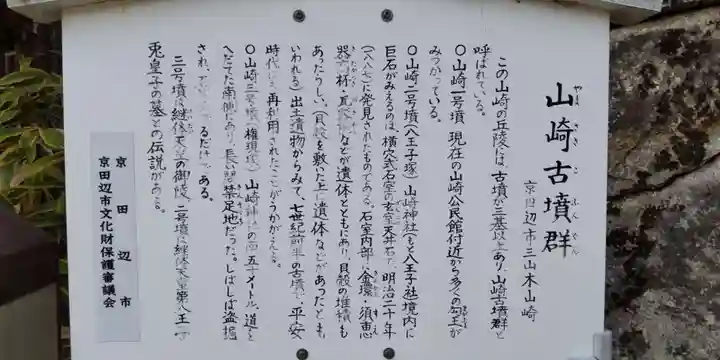 山崎古墳群
やまさきこふんぐん
京田辺市三山木山崎
この山崎の丘陵には、古墳が三基以上あり、山崎古墳群と
呼ばれている。
〇山崎一号墳 現在の山崎公民館付近から多くの勾玉が
みつかっている。
〇山崎二号墳(八王子塚) 山崎神社(もと八王子社)境内に
巨石がみえるのは、横穴式石室の玄室天井石で、明治二十年
(一八八七)に発見されたものである。石室内部に金環、須恵
器、などが遺体とともにあり、貝殻の堆積も
あったらしい。(貝殻を敷いた上に遺体などがあったとも
いわれる) 出土遺物からみて、七世紀前半の古墳で、平安
時代に再利用されたことがうかがえる。
〇山崎三号墳(権現塚) 山崎神社の五十メートル、道を
へだてた南側にあり、長い間禁足地だった。しばしば盗掘
され、るだけである。
三号墳は継体天皇の御陵、二号墳は継体天皇第八王子
兎皇子の墓との伝説がある。
京田辺市
京田辺市文化財保護審議会